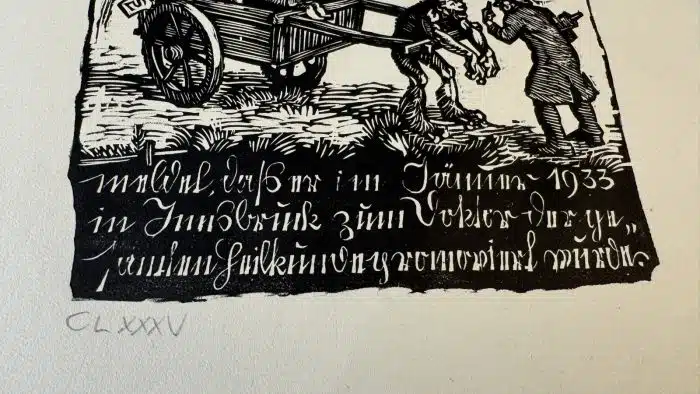 meldet, daß er im Jänner 1933
in Innsbruck zum Doktor der ge„
samten Heilkunde promoviert wurde
CLXXXV